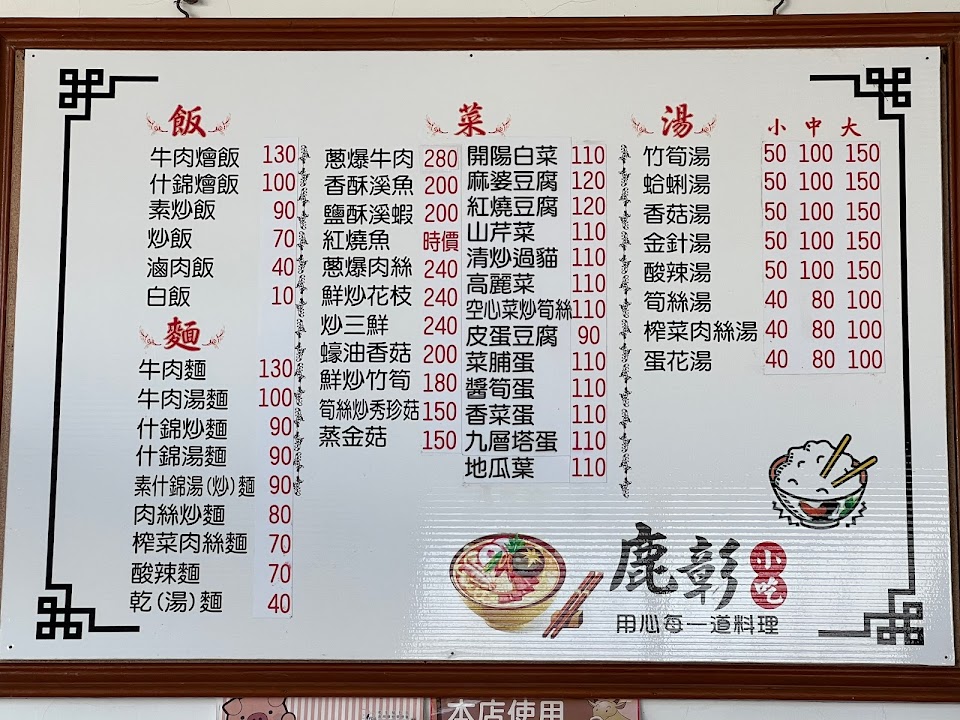 飯
牛肉燴飯 130
什錦燴飯 100
素炒飯 90
炒飯 70
滷肉飯 40
白飯 10
麵
牛肉麵 130
牛肉湯麵 100
什錦炒麵 90
什錦湯麵 90
素什錦湯(炒)麵 90
肉絲炒麵 80
榨菜肉絲麵 70
酸辣麵 70
乾(湯)麵 40
菜
蔥爆牛肉 280
香酥溪魚 200
鹽酥溪蝦 200
紅燒魚 時價
蔥爆肉絲 240
鮮炒花枝 240
炒三鮮 240
蠔油香菇 200
鮮炒竹筍 180
筍絲炒秀珍菇 150
蒸金菇 150
開陽白菜 110
麻婆豆腐 120
紅燒豆腐 120
山芹菜 110
清炒過貓 110
高麗菜 110
空心菜炒筍絲 110
皮蛋豆腐 90
菜脯蛋 110
醬筍蛋 110
香菜蛋 110
九層塔蛋 110
地瓜葉 110
湯 小 中 大
竹筍湯 50 100 150
蛤蜊湯 50 100 150
香菇湯 50 100 150
金針湯 50 100 150
酸辣湯 50 100 150
筍絲湯 40 80 100
榨菜肉絲湯 40 80 100
蛋花湯 40 80 100
鹿彰小吃
用心每一道料理
本店使用